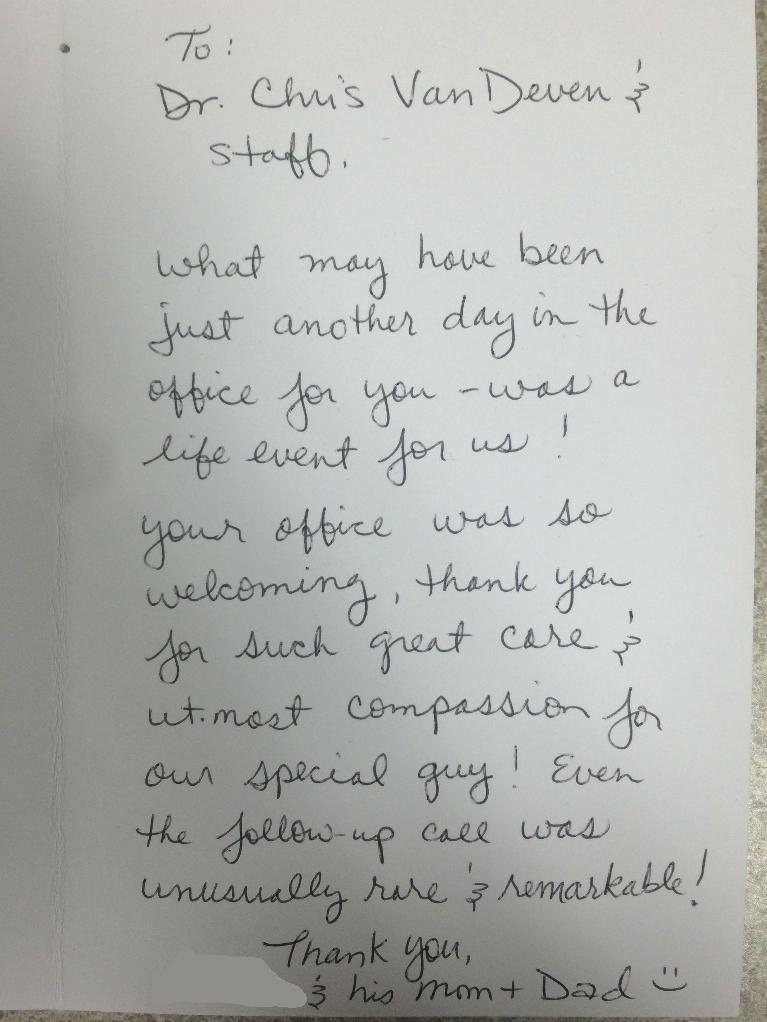 To:
Dr. Chris VanDeven &
staff.
what may have been
just another day in the
office for you - was a
life event for us !
your office was so
welcoming, thank you
for such great care &
ut.most compassion for
our special guy! Even
the follow-up call was
unusually rare & remarkable!
Thank you,
& his mom + Dad :)